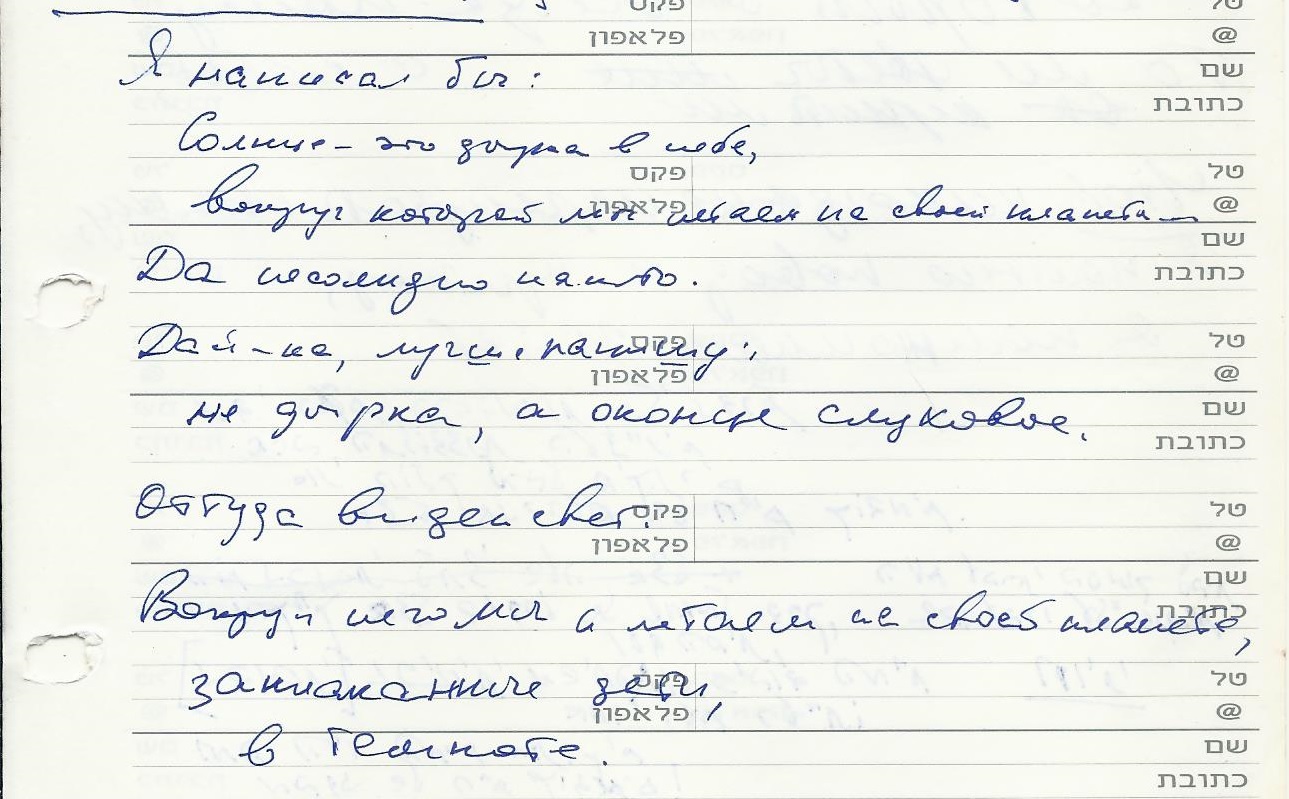 פקס טל
פלאפון @
Я написал бы: שם
כתובת
Солнце – это дырка в небе,
פקס טל
вокруг которой мы летаем на своей планете... פלאפון @
שם
Да несолидно как-то. כתובת
Дай-ка, лучше напишу: פקס טל
פלאפון @
не дырка, а оконце слуховое. שם
כתובת
Оттуда виден свет. פקס טל
פלאפון @
שם
Вокруг него мы и летаем на своей планете, כתובת
заплаканные дети, פקס טל
פלאפון @
в темноте. שם
כתובת